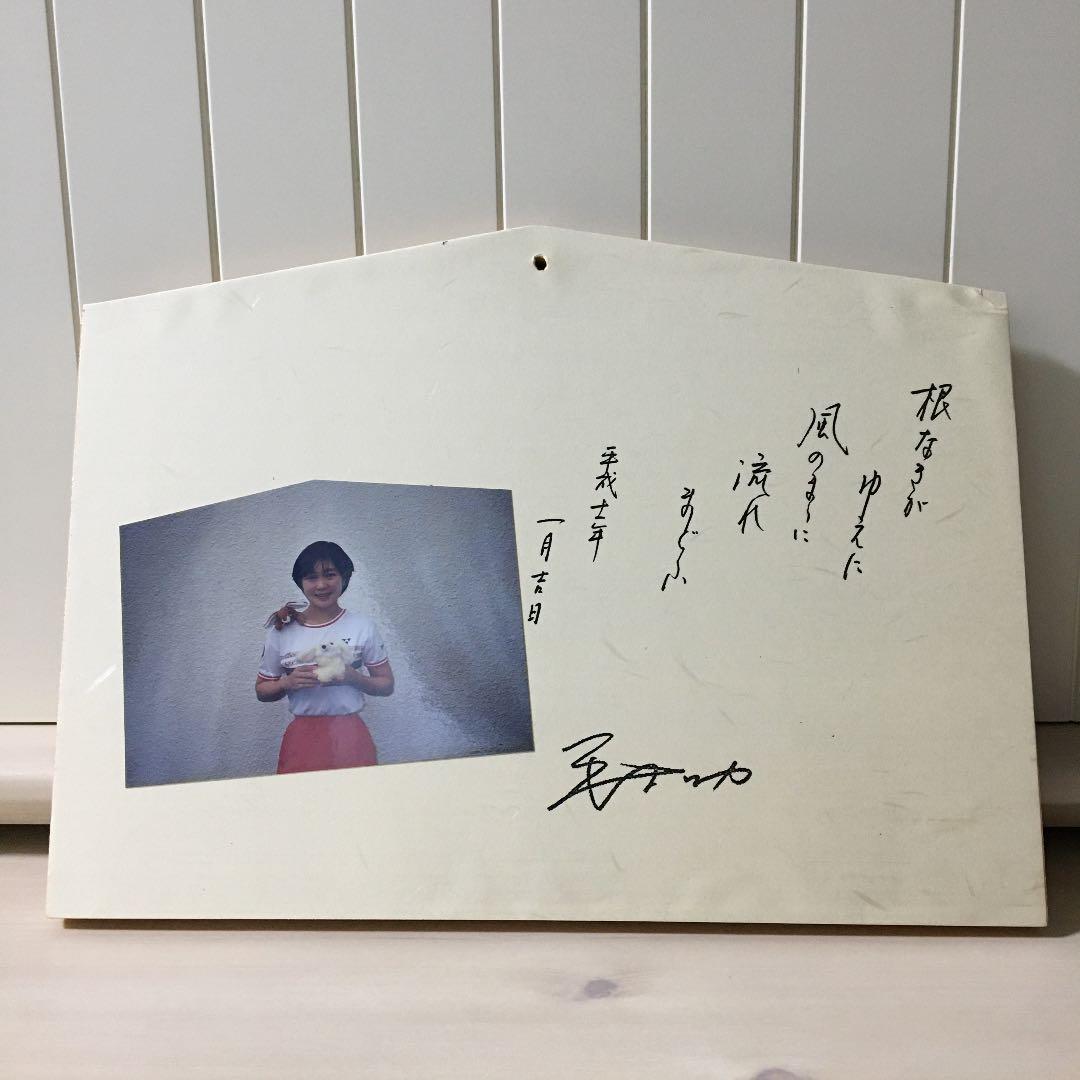 根なきが
ゆえに
風のまゝに
流れ
まどふ
平成十二年
一月吉日